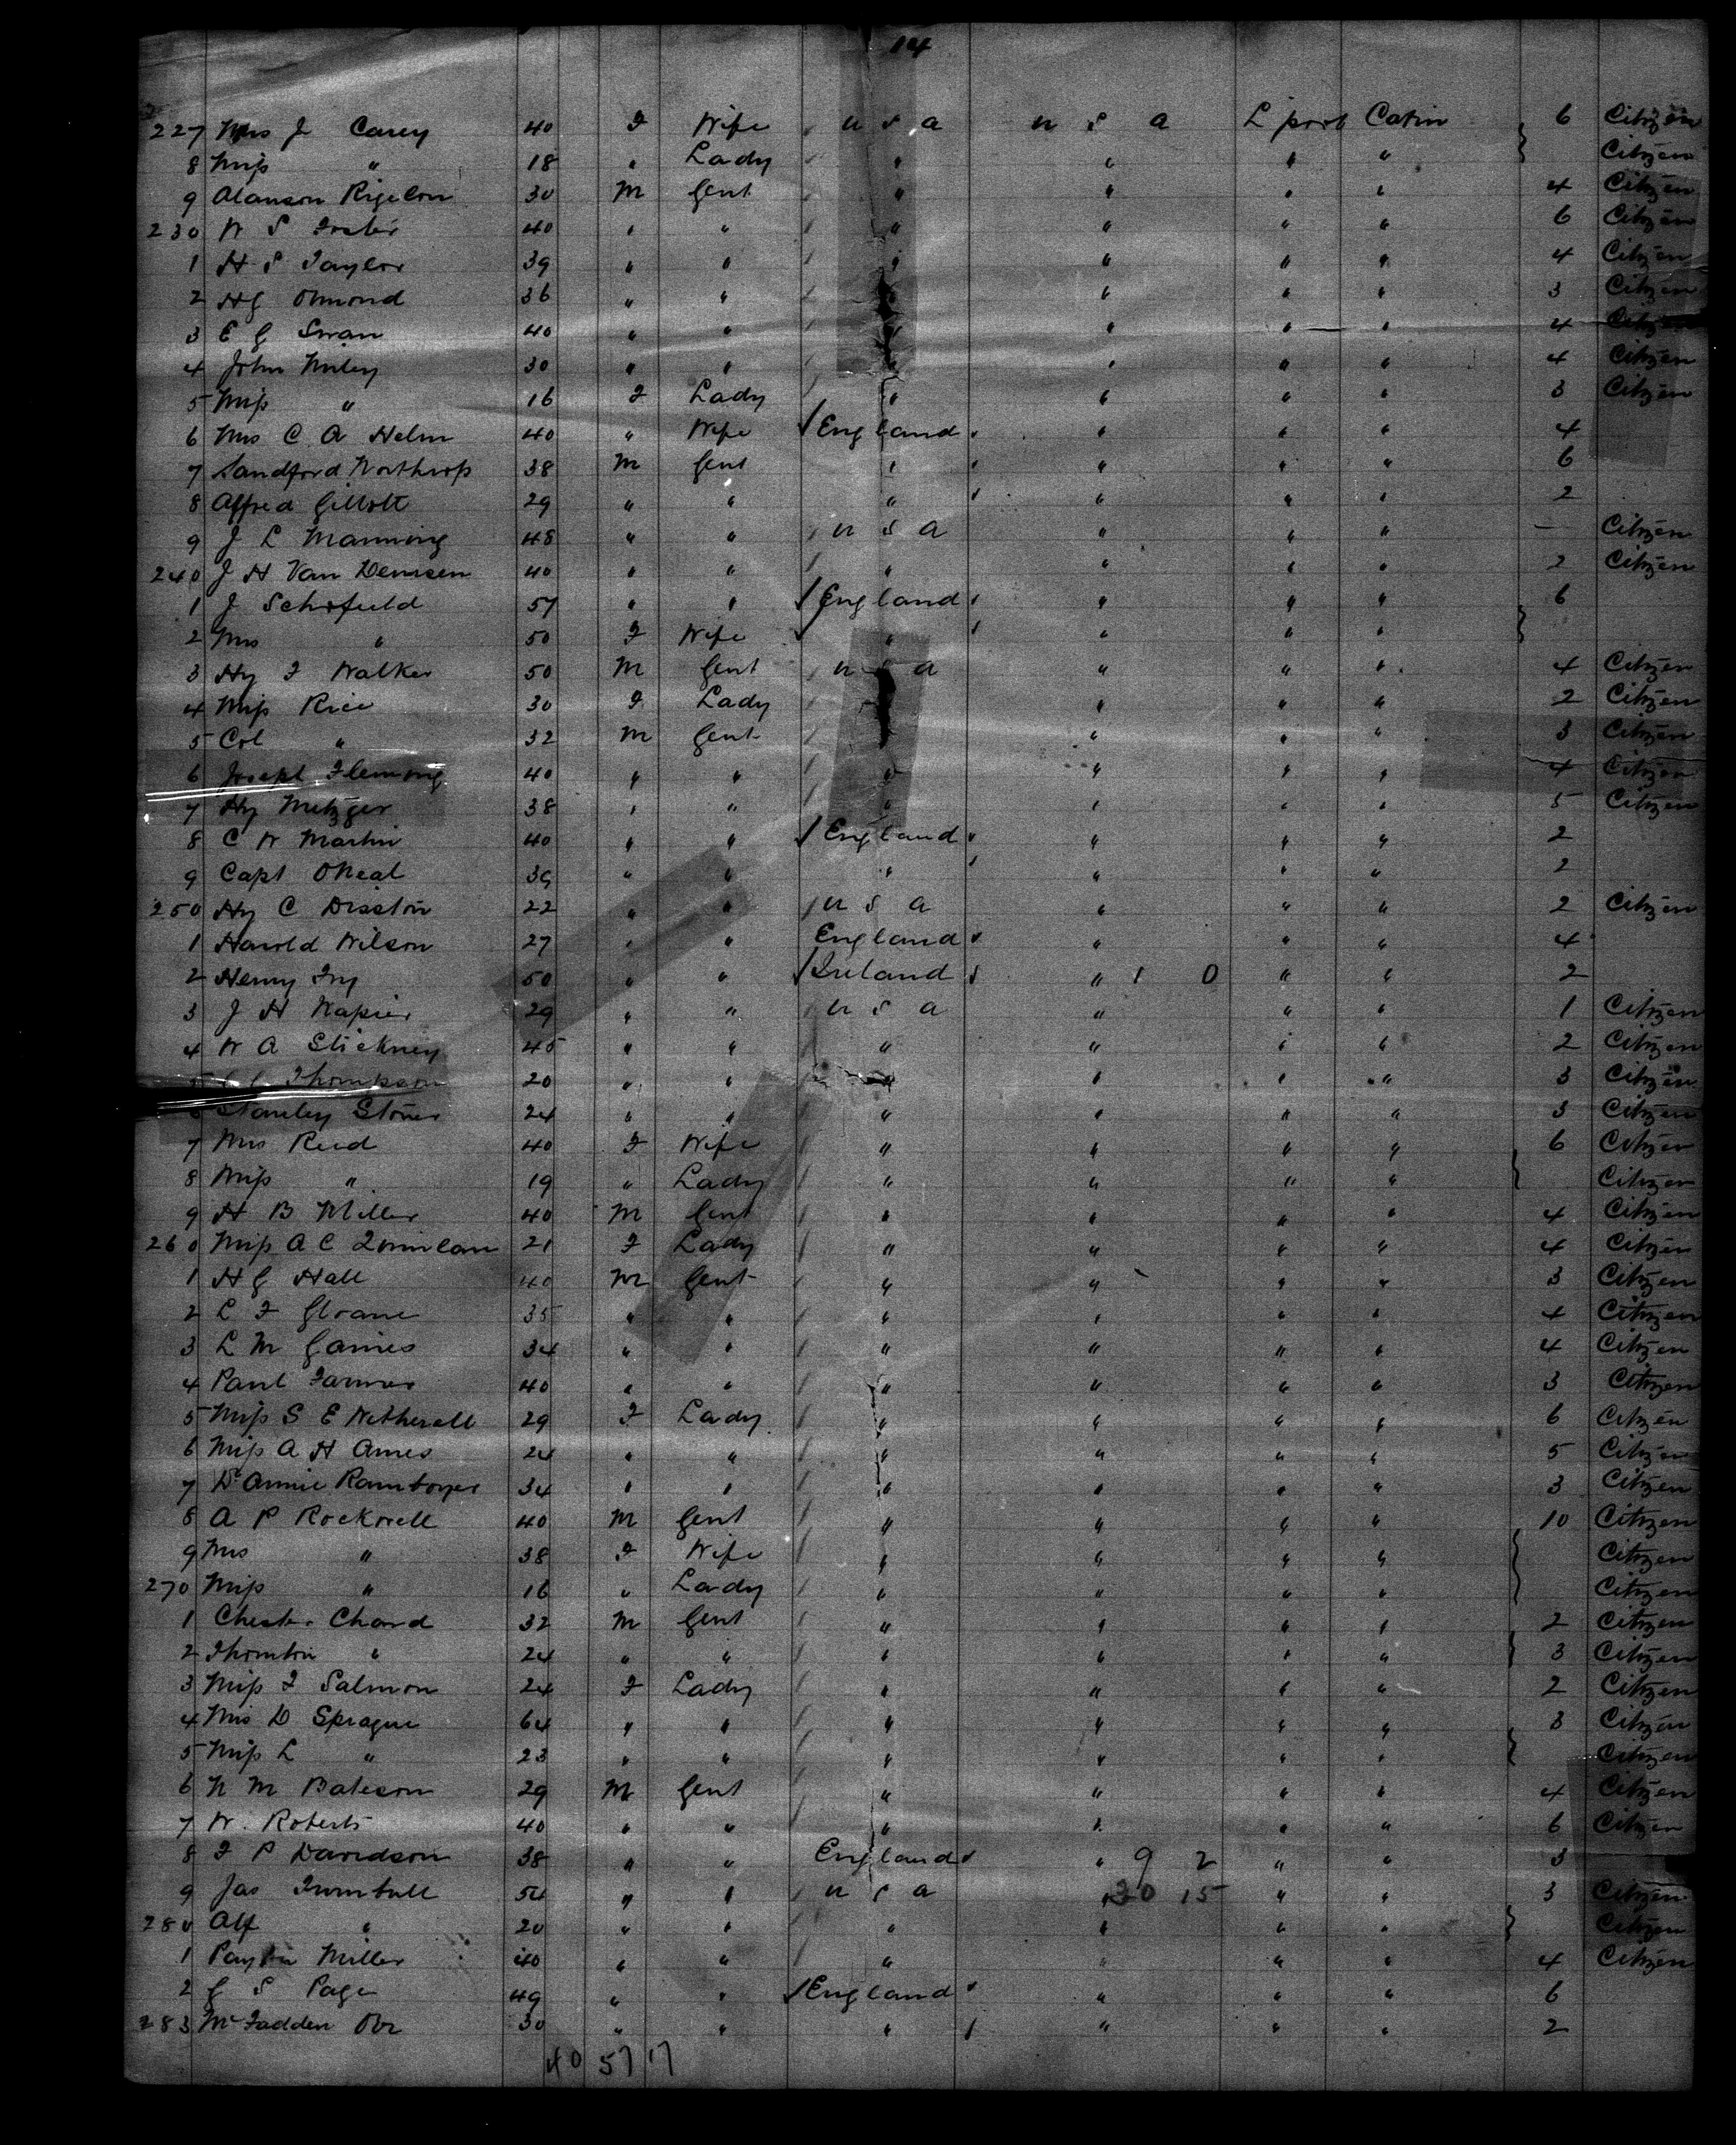 14
227 Mrs J Carey 40 F Wife U S A U S A L'pool Cabin 6 Citizen
8 Miss " 18 " Lady " " " " Citizen
9 Alanson 30 M Gent " " " " 4 Citizen
230 W S Foster 40 " " " " " " 6 Citizen
1 H S Taylor 39 " " " " " " 4 Citizen
2 H G Olmond 36 " " " " " " 3 Citizen
3 E G Swan 40 " " " " " " 4 Citizen
4 John Wiley 30 " " " " " " 4 Citizen
5 Miss " 16 F Lady " " " " 3 Citizen
6 Mrs C A Helm 40 " Wife England " " " 4
7 Sandford Northrop 38 M Gent " " " " 6
8 Alfred Gillott 29 " " " " " " 2
9 J L Manning 48 " " U S A " " " — Citizen
240 J H Van Deusen 40 " " " " " " 2 Citizen
1 J Schofield 57 " " England " " " 6
2 Mrs " 50 F Wife " " " "
3 Hy F Walker 50 M Gent U S A " " " 4 Citizen
4 Miss Rice 30 F Lady " " " 2 Citizen
5 Col " 32 M Gent " " " 3 Citizen
6 Joseph Fleming 40 " " " " " " 4 Citizen
7 Hy Metzger 38 " " " " " " 5 Citizen
8 C W Martin 40 " " England " " " 2
9 Capt ONeal 39 " " " " " " 2
250 Hy C Disston 22 " " U S A " " " 2 Citizen
1 Harold Wilson 27 " " England " " " 4
2 Henry Fry 50 " " Ireland " 1 0 " " 2
3 J H Napier 29 " " U S A " " " 1 Citizen
4 W A Stickney 45 " " " " " " 2 Citizen
5 Thompson 20 " " " " " 3 Citizen
6 Stanley Stoner 24 " " " " " " 3 Citizen
7 Mrs Reid 40 F Wife " " " " 6 Citizen
8 Miss " 19 " Lady " " " " Citizen
9 H B Miller 40 M Gent " " " " 4 Citizen
260 Miss A C Quinlan 21 F Lady " " " " 4 Citizen
1 H G Hall 40 M Gent " " " " 3 Citizen
2 L F Sloane 35 " " " " " " 4 Citizen
3 L M Gaines 34 " " " " " " 4 Citizen
4 Paul Farmer 40 " " " " " " 3 Citizen
5 Miss S E Netherell 29 F Lady " " " " 6 Citizen
6 Miss A H Ames 24 " " " " " " 5 Citizen
7 Dr Annie 34 " " " " " " 3 Citizen
8 A P Rockwell 40 M Gent " " " " 10 Citizen
9 Mrs " 38 F Wife " " " " Citizen
270 Miss " 16 " Lady " " " " Citizen
1 Chester Chard 32 M Gent " " " " 2 Citizen
2 Thornton " 24 " " " " " " 3 Citizen
3 Miss F Salmon 24 F Lady " " " " 2 Citizen
4 Mrs D Sprague 64 " " " " " " 3 Citizen
5 Miss L " 23 " " " " " " Citizen
6 N M Bateson 29 M Gent " " " " 4 Citizen
7 W. Roberts 40 " " " " " " 6 Citizen
8 F P Davidson 38 " " England " 9 2 " " 3
9 Jas Turnbull 54 " " U S A " 30 15 " " 3 Citizen
280 Alf " 20 " " " " " " Citizen
1 Payton Miller 40 " " " " " " 4 Citizen
2 G S Page 49 " " England " " " 6
283 McFadden 30 " " " " " " 2
40 57 17